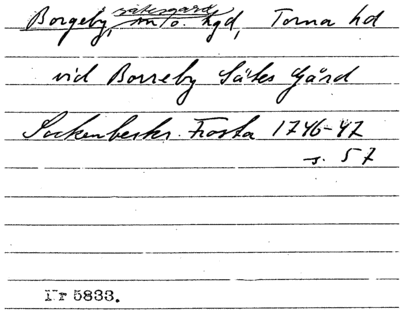 säkesgård
Borgeby, m/o. hgd, Torna hd
vid Borreby Sätes Gård
Sockenbeskr. Frosta 1746-47
s. 57
Nr 5833.